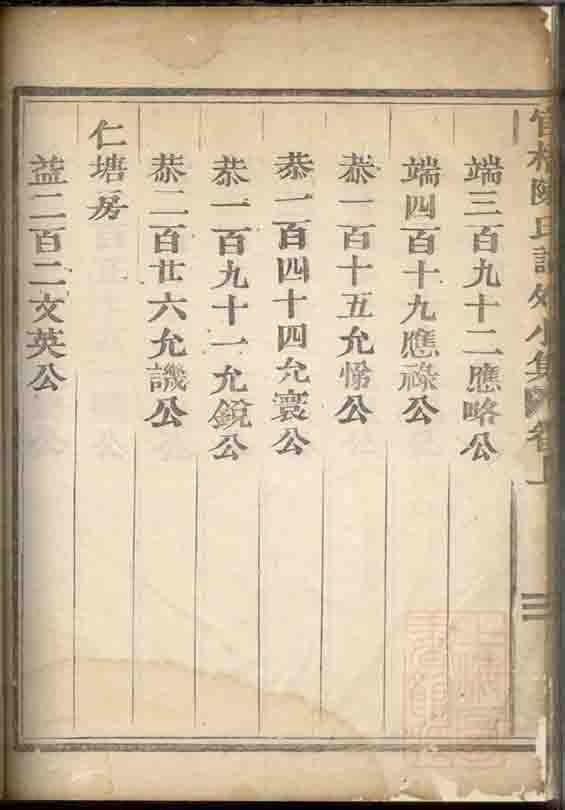 端三百九十二應略公
端四百十九應祿公
恭一百十五允悌公
恭一百四十四允寰公
恭一百九十一允銳公
恭二百廿六允譏公
仁塘房
益二百二文英公
陳氏譜外小集 卷上
二